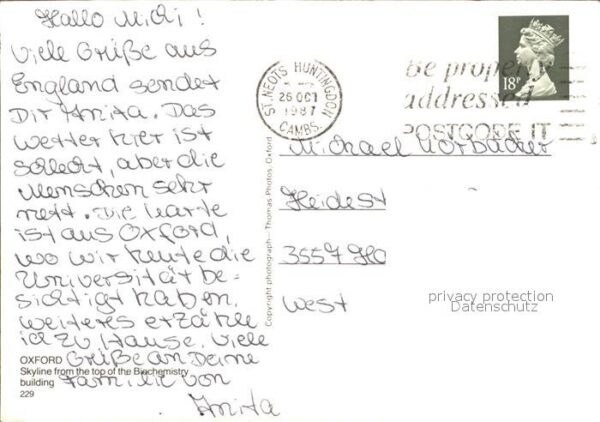 Hallo Michi!
Viele Grüße aus
England sendet
Dir Anita. Das
Wetter hier ist
schlecht, aber die
Menschen sehr
nett. Die Karte
ist aus Oxford,
wo wir heute die
Universität be=
sichtigt haben.
Weiteres erzähle
ich zu Hause. Viele
Grüße an Deine
Familie von
Anita
OXFORD
Skyline from the top of the Biochemistry
building
229
Copyright photograph—Thomas Photos, Oxford
ST. NEOTS HUNTINGDON
26 OCT
1987
CAMBS
Be properly
addressed
POSTCODE IT
18P
Michael
Heidest
3557
West
privacy protection
Datenschutz